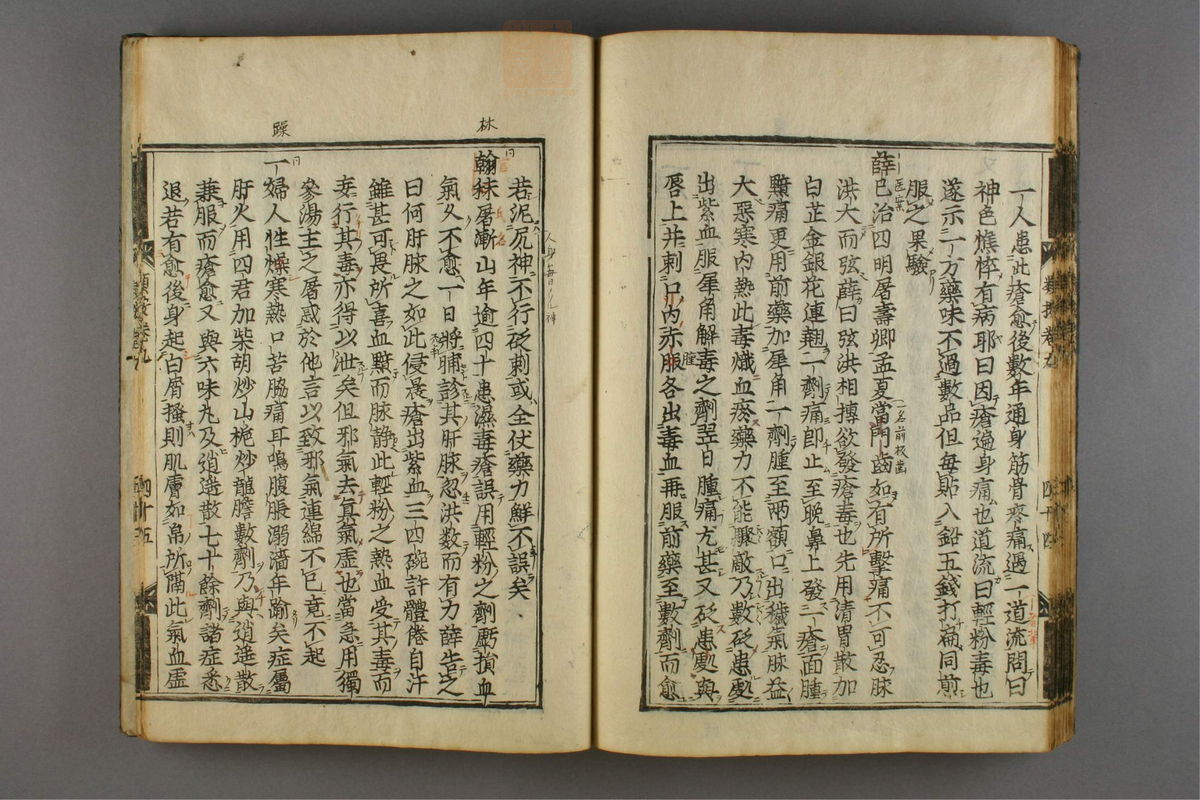 一人患此瘡愈後數年通身筋骨疼痛遇一道流問曰
神色憔悴有病耶曰因瘡遍身痛也道流曰輕粉毒也
遂示一方藥味不過數品但每貼入鉛五錢打匾同煎
服之果驗
薛己治四明屠壽卿孟夏當門齒如有所擊痛不可忍脉
洪大而弦薛曰弦洪相搏欲發瘡毒也先用清胃散加
白芷金銀花連翹二劑痛即止至晚鼻上發一瘡面腫
黯痛更用前藥加犀角一劑腫至兩額口出穢氣脉益
大惡寒内熱此毒熾血瘀藥力不能驟敵乃數砭患處
出紫血服犀角解毒之劑翌日腫痛尤甚又砭患處與
唇上并刺口内赤脉各出毒血再服前藥至數劑而愈
若泥尻神不行砭刺或全仗藥力鮮不誤矣
翰林屠漸山年逾四十患濕毒瘡誤用輕粉之劑虧損血
氣久不愈一日將晡診其肝脉忽洪数而有力薛告之
曰何肝脉之如此侵晨瘡出紫血三四碗許體倦自汗
雖甚可畏所喜血黯而脉静此輕粉之熱血受其毒而
妄行其毒亦得以泄矣但邪氣去真氣虚也當急用獨
參湯主之屠惑於他言以致邪氣連綿不已竟不起
一婦人性燥寒熱口苦脇痛耳鳴腹脹溺濇年踰矣症屬
肝火用四君加柴胡炒山梔炒龍膽數劑乃與逍遥散
兼服而瘡愈又與六味丸及逍遥散七十餘劑諸症悉
退若有愈後身起白屑搔則肌膚如帛所隔此氣血虚
林
躁
四十四
四十五